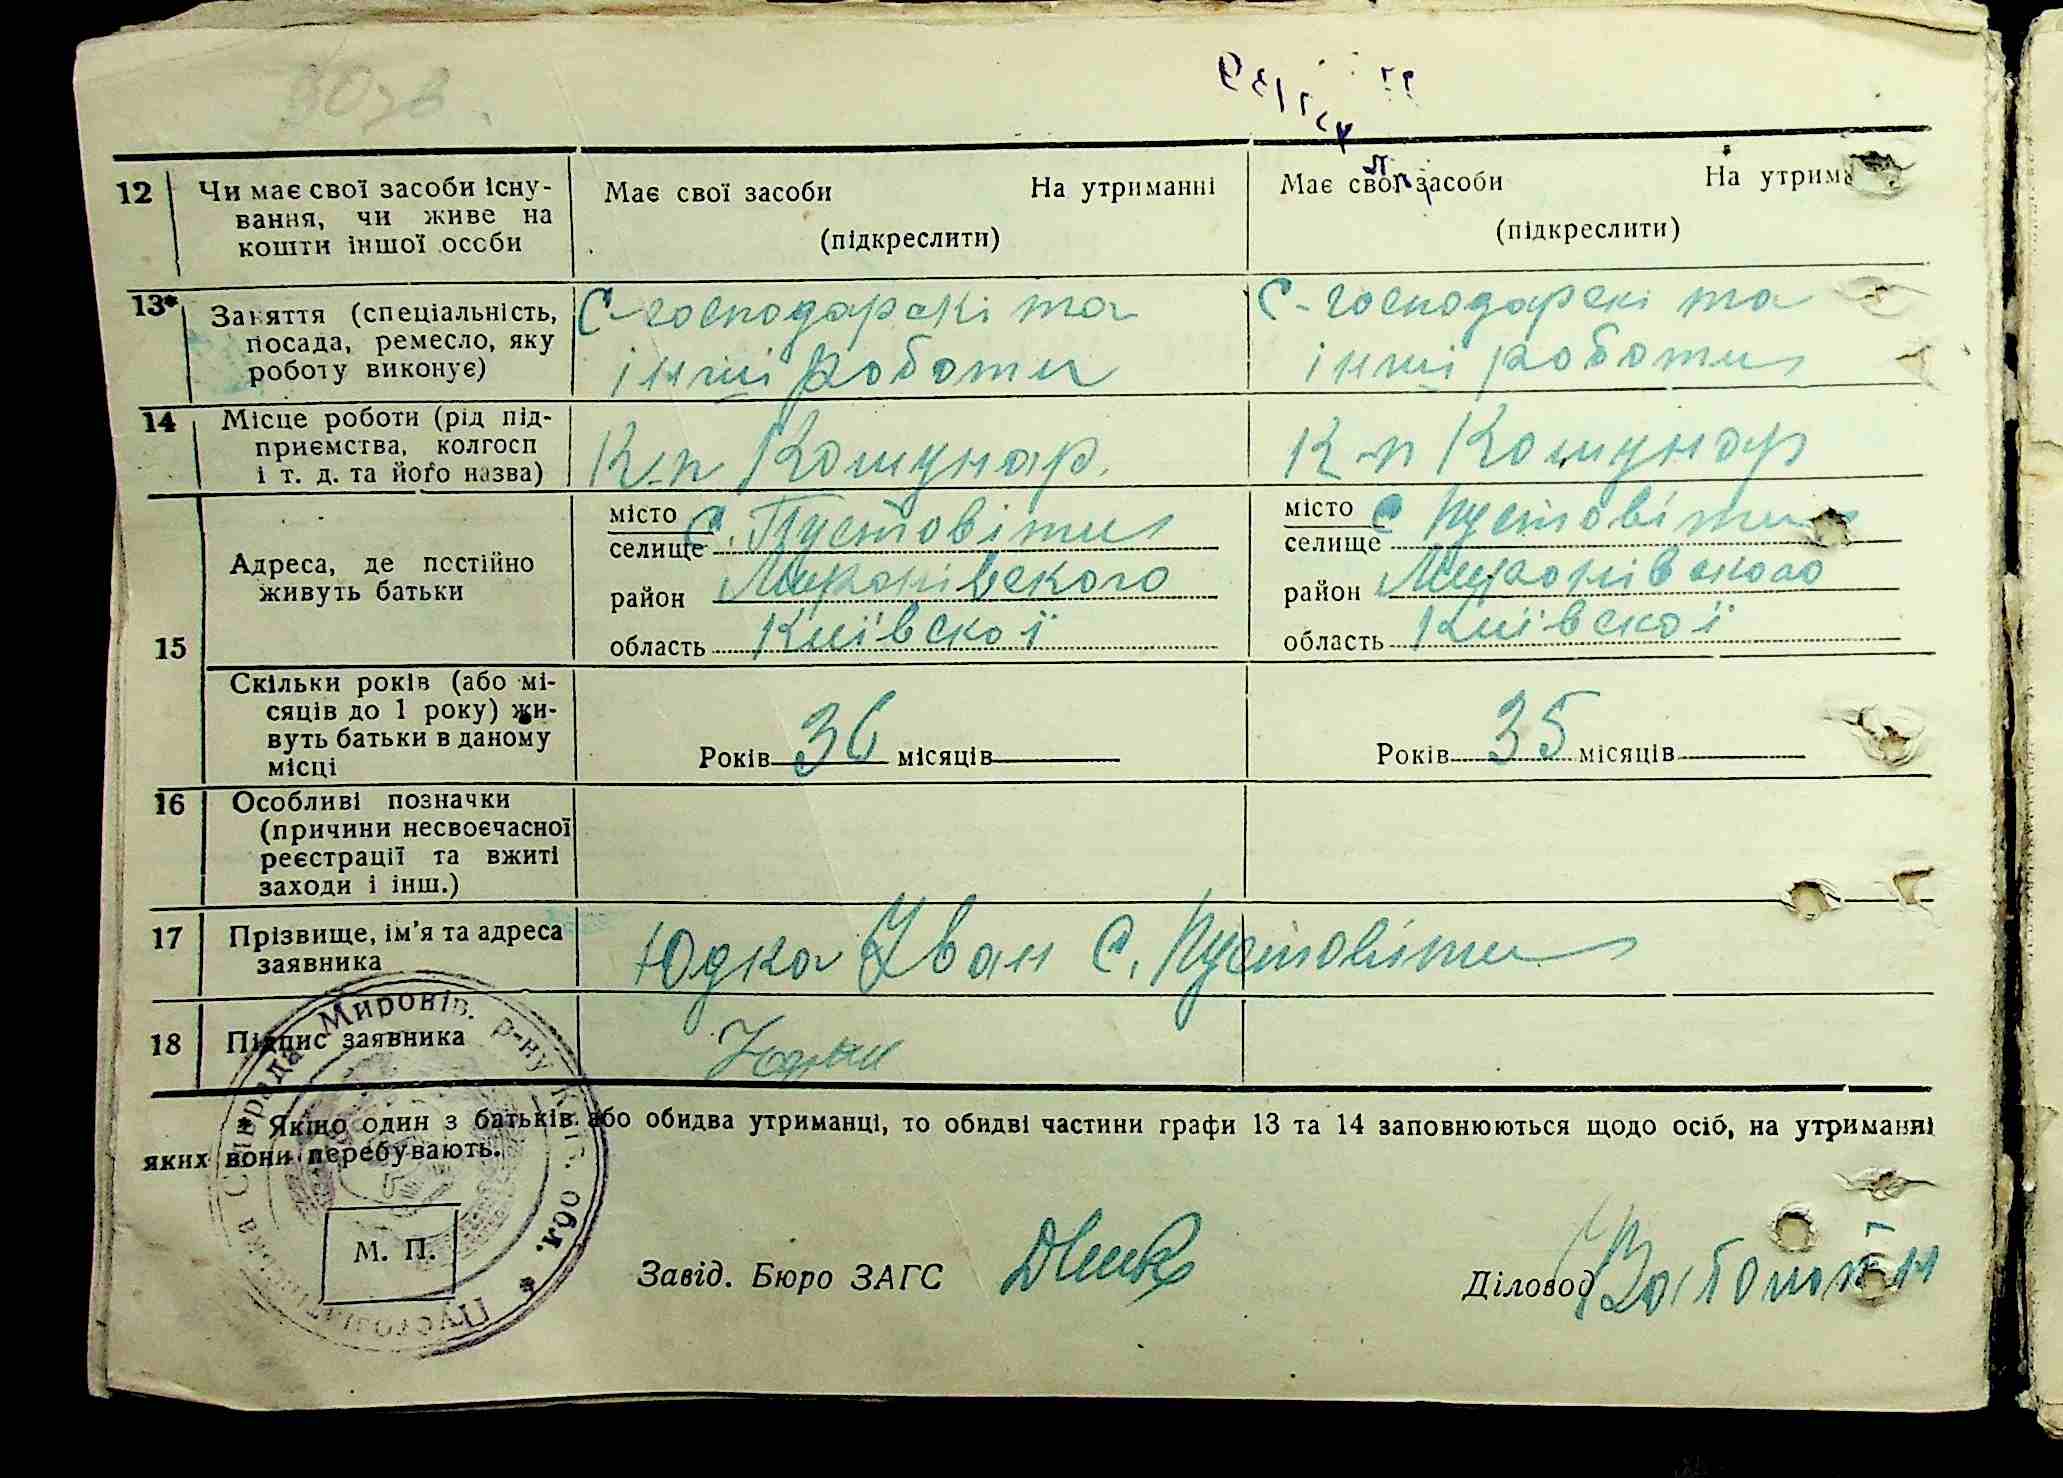 12 Чи має свої засоби існу- Має свої засоби На утриманні Має свої засоби На утрима
вання, чи живе на
кошти іншої особи (підкреслити) (підкреслити)
13* Заняття (спеціальність, С-господарскі та С-господарскі та
посада, ремесло, яку
роботу виконує) інші роботи інші роботи
14 Місце роботи (рід під-
приємства, колгосп К-п Комунар. К-п Комунар
і т. д. та його назва)
15 Адреса, де постійно
живуть батьки
місто
селище С. Пустовіти
район Миронівского
область Київскої
місто
селище С Пустовіти
район Миронівского
область Київскої
Скільки років (або мі-
сяців до 1 року) жи-
вуть батьки в даному
місці
Років 36 місяців Років 35 місяців
16 Особливі позначки
(причини несвоєчасної
реєстрації та вжиті
заходи і інш.)
17 Прізвище, ім'я та адреса
заявника Юдка Іван С. Пустовіти
18 Підпис заявника
* Якщо один з батьків або обидва утриманці, то обидві частини графи 13 та 14 заповнюються щодо осіб, на утриманні
яких вони перебувають.
М. П.
Завід. Бюро ЗАГС Діловод
Миронів. р-ну обл. *